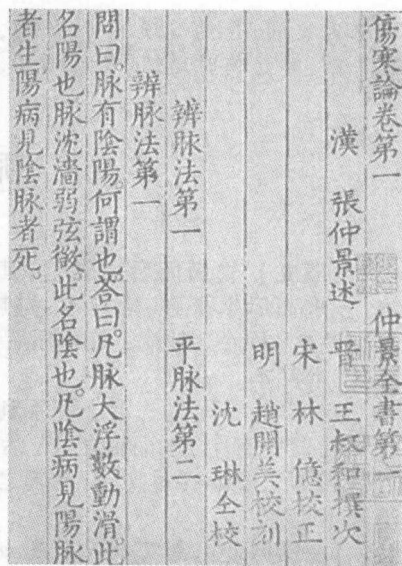 傷寒論卷第一 仲景全書第一
漢 張仲景述 晉 王叔和撰次
宋 林 億校正
明 趙開美校刻
沈 琳仝校
辨脉法第一 平脉法第二
辨脉法第一
問曰。脉有陰陽。何謂也。荅曰。凡脉大浮數動滑。此
名陽也。脉沈濇弱弦微。此名陰也。凡陰病見陽脉
者生。陽病見陰脉者死。